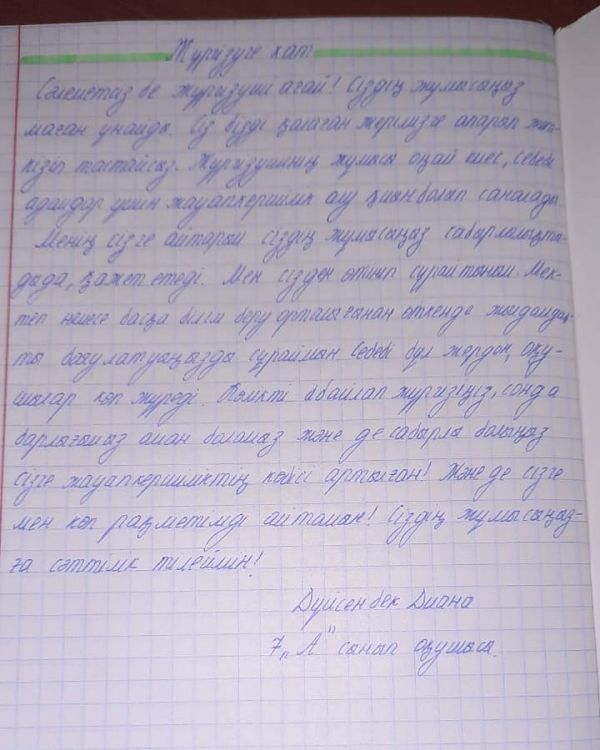 Жүргізуге хат
Сәлеметсіз бе жүргізуші ағай! Сіздің жұмысыңыз
маған ұнайды. Сіз бізді қалаған жерімізге апарып жет-
кізіп тастайсыз. Жүргізушінің жұмысы оңай емес, себебі
адамдар үшін жауапкершілік алу қиын болып саналады.
Менің сізге айтарым сіздің жұмысыңыз сабырлылықты-
дыда, қажет етеді. Мен сізден өтініп сұрайтыным. Мек-
теп немесе басқа білім беру орталығынан өткенде жылдамдық-
ты баяулатуыңызды сұраймын. Себебі бұл жерден, оқу-
шылар көп жүреді. Көлікті абайлап жүргізіңіз, сонда
барлығымыз аман боламыз және де сабырлы болыңыз
сізге жауапкершіліктің көбісі артылған! Және де сізге
мен көп рақметімді айтамын! Сіздің жұмысыңыз-
ға сәттілік тілеймін!
Дүйсенбек Диана
7 „А" сынып оқушысы.